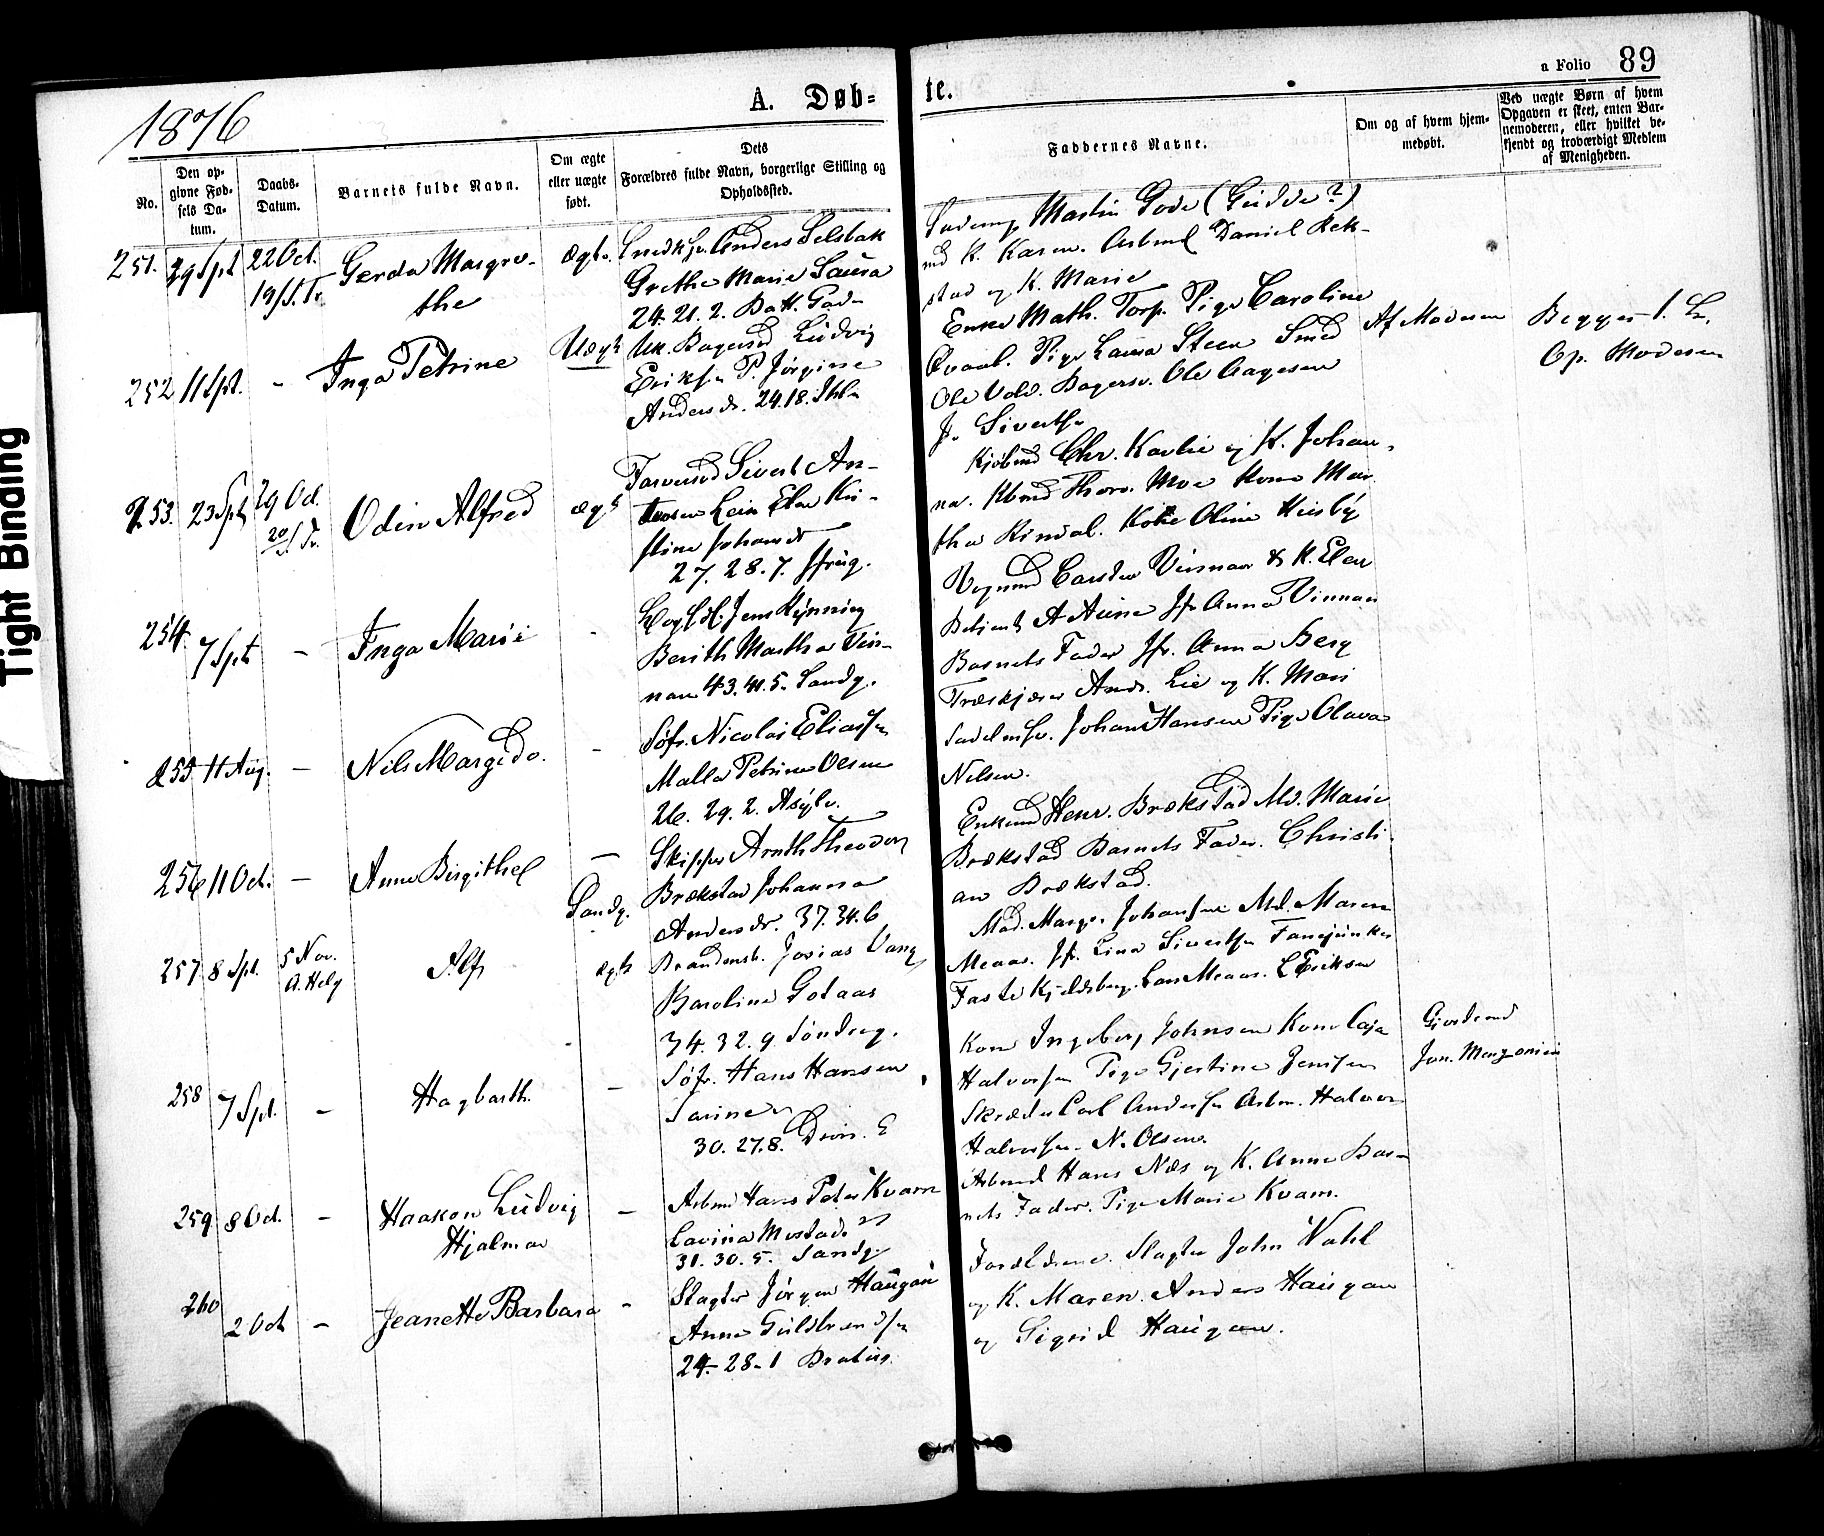 Tight Binding
1876
A. Døb=
te.
a Folio 89
No.
Den op-
givne Fød-
sels Da-
tum.
Daabs-
Datum.
Barnets fulde Navn.
Om ægte
eller uægte
født.
Dets
Forældres fulde Navn, borgerlige Stilling og
Opholdssted.
Faddernes Navne.
Om og af hvem hjem-
medøbt.
Ved uægte Børn af hvem
Opgaven er skeet, enten Bar-
nemoderen, eller hvilket be-
kjendt og troværdigt Medlem
af Menigheden.
251. 29 Spt 22 Oct.
Gerda Margre-
the
Anders Selsbak
Grethe Marie
24. 21. 2.
Martin Gode (Gudde?)
K. Karen. Arbmd Daniel Rek-
stad og K. Marie
252 11 Spt. -
Inga Petrine
Uægt
Uk. Bagersd Ludvig
Eriks. P. Jørgine
Andersdr. 24. 18.
Enke Math. Torp. Pige Caroline
Pige Laura Steen Smed
Ole Vold. Bagersv. Ole Aagesen
J. Siverts.
Af Moderen
Begges 1. L.
Op. Moderen
253. 23 Spt 29 Oct.
20/S. Tr.
Odin Alfred
ægt
Farversd Sivert An-
Lein Elen Kri-
stine Johansd
27. 28. 7.
Kjøbmd Chr. Kavlie og K. Johan-
na. Thorv. Moe Kone Mar-
tha Rindal. Kokke Oline Huusby
254. 7 Spt -
Inga Marie
-
Jens Rynning
Berith Martha Vin-
nan 43. 41. 5. Sandg.
Vognmd Carsten Vinnan & K. Elen
A Aune Jfr Anna Vinnan
Barnets Fader Jfr. Anna Berg
255 11 Aug. -
Nils Margido.
-
Søfr. Nicolai Eliass.
Malla Petrine Olsen
26. 29. 2. Asylv.
Træskjærer Andr. Lie og K. Mari
Johan Hansen Pige Olava
Nelsen.
256 11 Oct. -
Anne Birgithe
-
Sandg.
Skipper Arnth Theodor
Brækstad Johanna
Andersdr. 37. 34. 6
Enkemd Henr. Brækstad Md. Marie
Brækstad Barnets Fader. Christi-
an Brækstad.
257. 8 Spt. 5 Nov.
A. Helg
Alf
ægt
Brandmst. Josias Vang
Karoline Golaas
34. 32. 9. Søndreg.
Mad. Marg. Johansen Md. Maren
Meaas. Jfr. Lina Sivertsen Fanejunker
Faste Kjeldsberg. Lars Meaas. L Eriksen
258 7 Spt. -
Hagbarth.
-
Søfr. Hans Hansen
Sarine
30. 27. 8. Divis. E
Kone Ingeborg Johnsen Kone Caja
Halvorsen Pige Gjertine Jensen
Skræder Carl Anders. Arbm. Halvor
Halvorsen. N. Olsen.
Gjordemd
259 8 Oct. -
Haakon Ludvig
Hjalmar
-
Arbmd Hans Peter Kvam
Lavina Mostad
31. 30. 5. Sandg.
Arbmd Hans Næs og K. Anne Bar-
nets Fader. Pige Marie Kvam.
260 2 Oct -
Jeanette Barbara
-
Slagter Jørgen Haugan
Anne Guldbrands.
24- 28- 1 Bratug.
Forældrene. Slagter John Vahl
og K. Maren. Anders Haugan
og Sigrid Haugan.